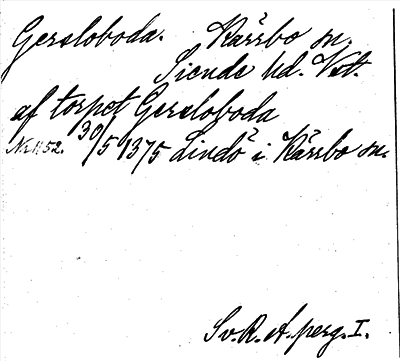 Gersloboda. Kärrbo sn.
Siende hd. Vstl.
af torpet Gersloboda
Nr 1152. 30/5 1375 Lindö i Kärrbo sn.
Sv. R. A. perg. I.